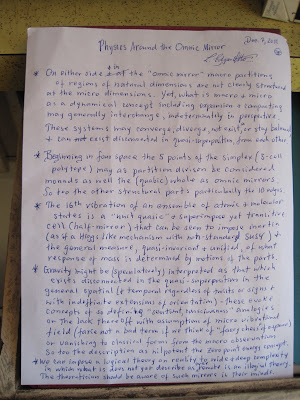 Dec. 7, 2011
Physics Around the Omnic Mirror
* On either side + in & at the "omnic mirror" macro partitions
of regions of natural dimensions are not clearly structured
as the micro dimensions. Yet, what is macro + micro
as a dynamical concept including expansion + compacting
may generally interchange, indeterminately in perspective
These systems may converge, diverge, not exist, or stay balanced
+ can not exist disconnected in quasi-superposition, from each other
* Beginning in four space the 5 points of the simplex (5-cell
polytope) may as partition division be considered
monads as well the (nomic) whole as omnic mirrors
So too the other structural parts particularly the 10 edges.
* The 16th vibration of an ensemble of atomic + molecular
states is a "null quasic" + superimpose yet transitive
cell (half-mirror) that can be seen to impose inertia
(as if a Higgs like mechanism with not-standard susy) +
the general measure, quasi-invariant + uniform, of what
response of mass is determined by motions of the parts.
* Gravity might be (speculatively) interpreted as that which
exists disconnected in the quasi-superposition in the
general spatial (+ temporal) regions of twists or signs +
with indefinite extensions of orientation) - these evoke
concepts of
or the lack thereof with assumption of micro vibrational
field (farie not a bad term if we think of "fairy chess" of expansion)
or vanishing to classical forms from the macro observations
So too the description as nilpotent the zero point energy concept.
* We can impose a logical theory on reality to wider + deep complexity
in which what is does not yet describe as remote is an illogical theory
The theoretician should be aware of such mirrors in their minds.